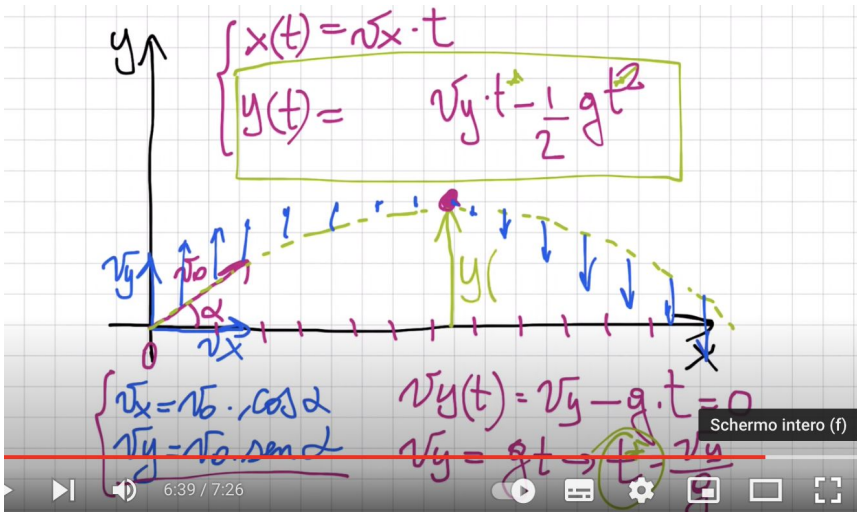 y
x(t) = vx · t
y(t) = vy · t - 1/2 g t²
vy
v₀
α
y(
vx
0
x
vx = v₀ · cos α
vy = v₀ · sen α
vy(t) = vy - g · t = 0
vy = gt → t = vy/g
Schermo intero (f)
6:39 / 7:26